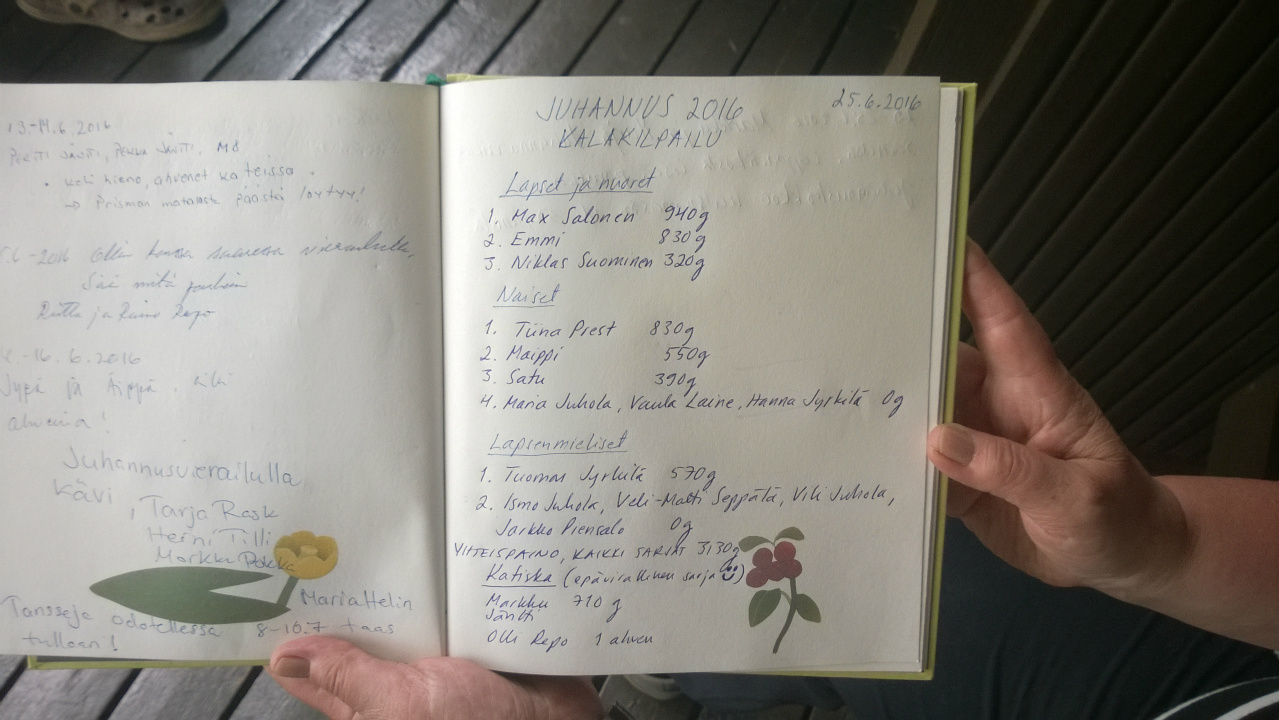 13.-14.6.2016
Pertti Jäntti, Pekka Jäntti, MJ
• keli hieno, ahvenet kateissa
→ Prisman matalasta päästä löytyy!
2016 Olli kanssa saaressa vierailulla,
Sai mitä
Riitta ja Raimo Repo
-16.6.2016
Jypä ja Äippä
ahvenia!
Juhannusvierailulla
kävi
, Tarja Rask
Henni Tilli
Markku Pokka
Maria Helin
Tansseja odotellessa 8-10.7 taas
tullaan!
JUHANNUS 2016 25.6.2016
KALAKILPAILU
Lapset ja nuoret
1. Max Salonen 940g
2. Emmi 830g
3. Niklas Suominen 320g
Naiset
1. Tiina Prest 830g
2. Maippi 550g
3. Satu 390g
4. Maria Juhola, Vaula Laine, Hanna Jyrkilä 0g
Lapsenmieliset
1. Tuomas Jyrkilä 570g
2. Ismo Juhola, Veli-Matti Seppälä, Vili Juhola,
Jarkko Piensalo 0g
YHTEISPAINO, KAIKKI SARJAT 3130g
Katiska (epävirallinen sarja ☺)
Markku 710 g
Jäntti
Olli Repo 1 ahven